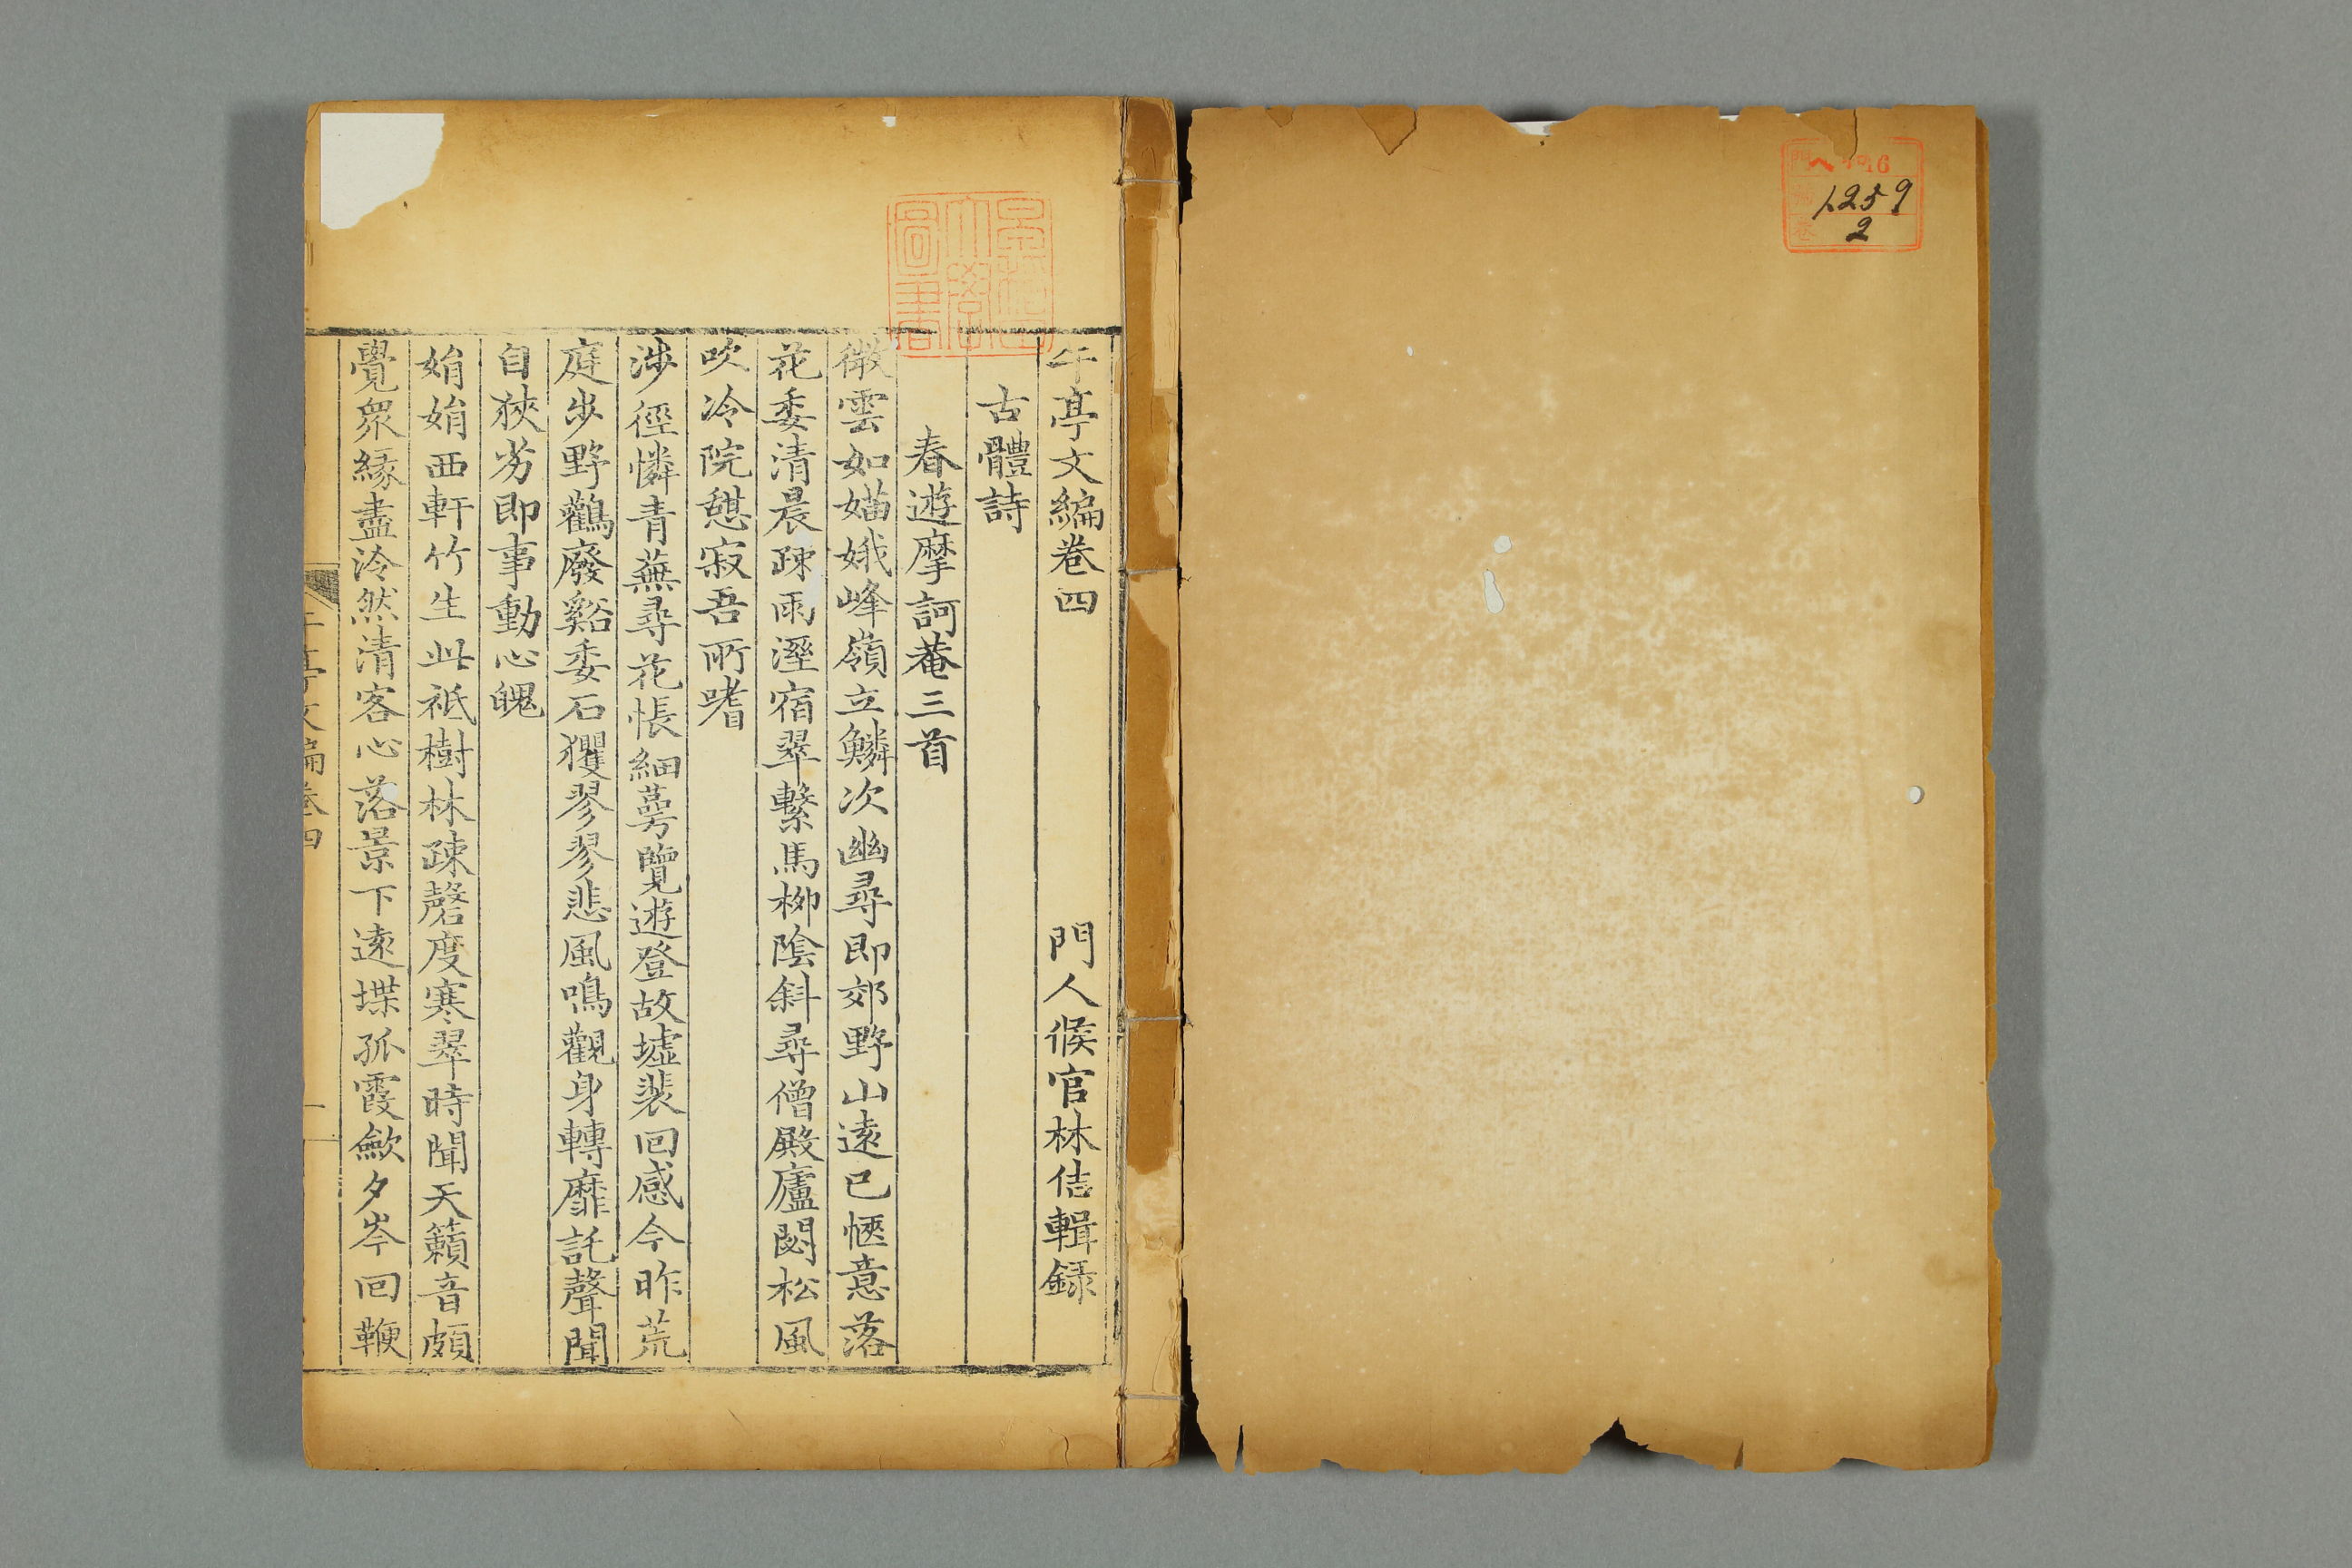 門 ヘ 16
1259
2
早稻田大學圖書
午亭文編卷四 門人候官林佶輯録
古體詩
春遊摩訶菴三首
微雲如媌娥峰嶺立鱗次幽尋即郊野山遠已愜意落
花委清晨疎雨溼宿翠繫馬柳陰斜尋僧殿廬閟松風
吹冷院憇寂吾所嗜
涉徑憐青蕪尋花悵細蕚覽遊登故墟裴回感今昨荒
庭步野鸛廢谿委石玃翏翏悲風鳴觀身轉靡託聲聞
自狹劣即事動心魄
娟娟西軒竹生此祇樹林疎磬度寒翠時聞天籟音頗
覺衆緣盡泠然清客心落景下遠堞孤霞斂夕岑回鞭
午亭文編卷四 一